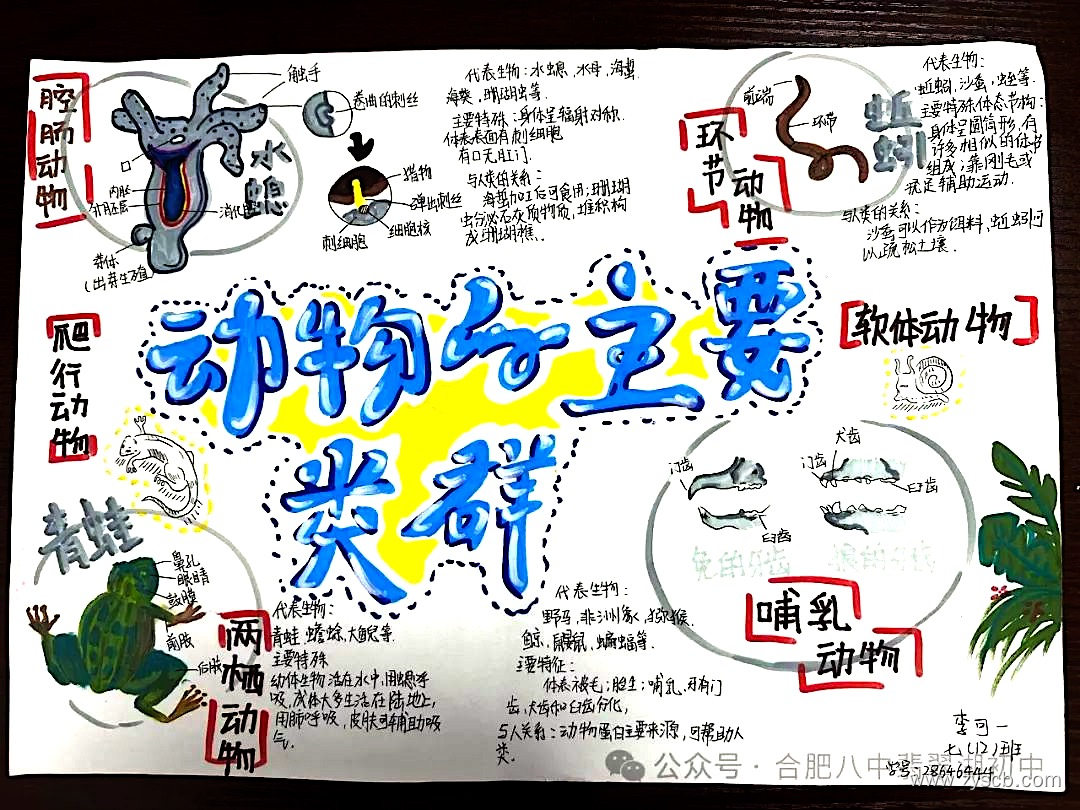 腔肠动物
水螅
触手
卷曲的刺丝
内胚层
外胚层
消化腔
芽体
(出芽生殖)
猎物
弹出刺丝
刺细胞
细胞核
代表生物：水螅、水母、海蜇
海葵、珊瑚虫等.
主要特殊：身体呈辐射对称.
体表表面有刺细胞
有口无肛门.
与人类的关系：
海蜇加工后可食用；珊瑚
虫分泌石灰质物质，堆积构
成珊瑚礁.
环节动物
蚯蚓
前端
环带
代表生物：
蚯蚓，沙蚕，蛭等.
主要特殊体态节构：
身体呈圆筒形，有
许多相似的体节
组成；靠刚毛或
疣足辅助运动.
与人类的关系：
沙蚕可以作为饵料、蚯蚓可
以疏松土壤.
动物的主要
类群
爬行动物
软体动物
青蛙
鼻孔
眼睛
鼓膜
前肢
后肢
两栖动物
代表生物：
青蛙、蟾蜍、大鲵等.
主要特殊
幼体生物活在水中，用鳃呼
吸，成体大多生活在陆地上，
用肺呼吸，皮肤可辅助吸
气.
代表生物：
野马、非洲象、猕猴、
鲸、鼹鼠、蝙蝠等.
主要特征：
体表被毛；胎生；哺乳、牙有门
齿、犬齿和臼齿分化，
与人关系：动物蛋白主要来源，可帮助人
类.
门齿
臼齿
犬齿
门齿
臼齿
兔的牙齿
狼的牙齿
哺乳动物
李可一
七(12)班
学号:28646444
公众号·合肥八中翡翠湖初中
www.zyscb.com